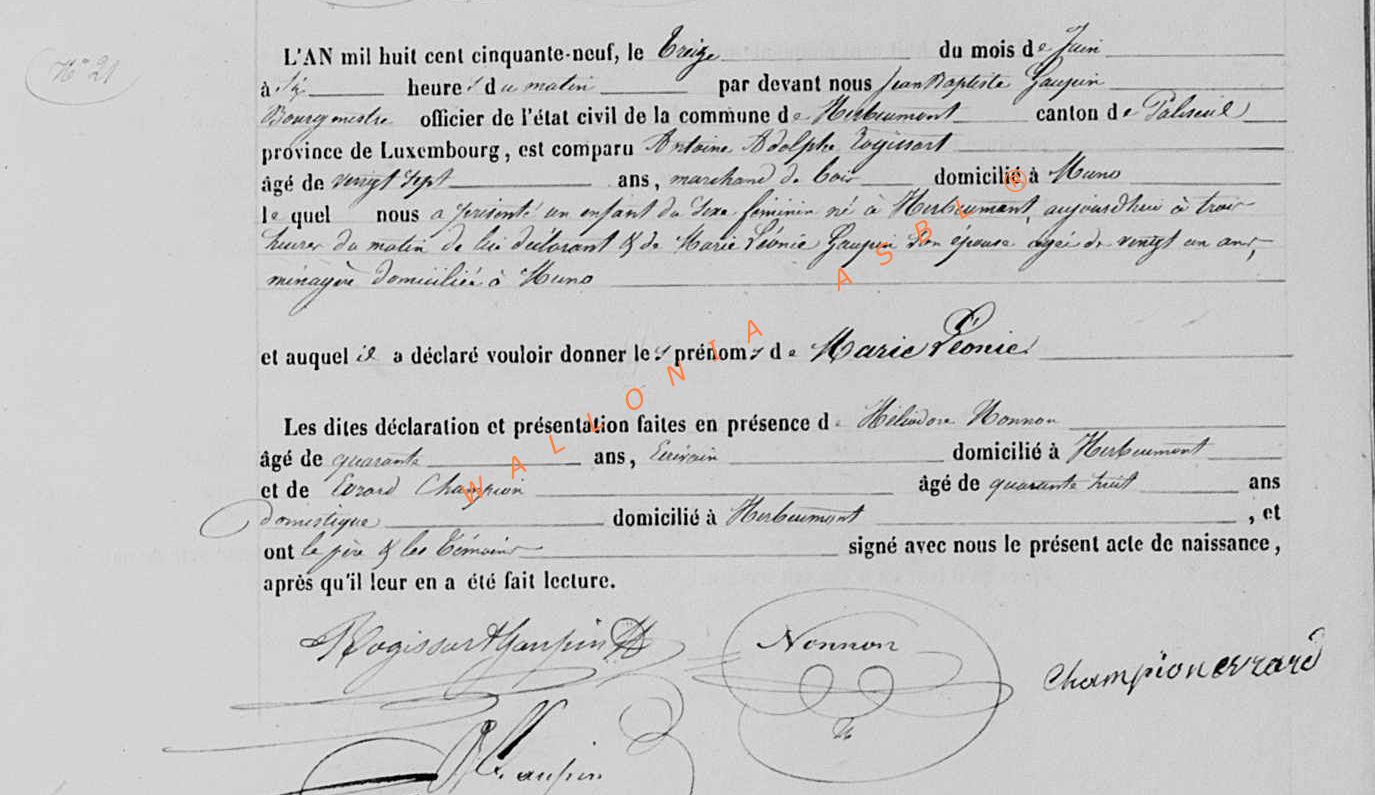 N° 21
L'AN mil huit cent cinquante-neuf, le Treize du mois de Juin
à six heures du matin par devant nous Jean Baptiste Gaupin
Bourgmestre officier de l'état civil de la commune de Herbeumont canton de Paliseul
province de Luxembourg, est comparu Antoine Adolphe Rogissart
âgé de vingt sept ans, marchand de bois domicilié à Muno
le quel nous a présenté un enfant du sexe féminin né à Herbeumont, aujourdhui à trois
heures du matin de lui déclarant & de Marie Léonie Gaupin son épouse agée de vingt un ans,
ménagère domiciliée à Muno
et auquel il a déclaré vouloir donner les prénoms de Marie Léonie
Les dites déclaration et présentation faites en présence de Héliodore Nonnon
âgé de quarante ans, Ecrivain domicilié à Herbeumont
et de Evrard Champion âgé de quarante huit ans
domestique domicilié à Herbeumont, et
ont le père & les témoins signé avec nous le présent acte de naissance,
après qu'il leur en a été fait lecture.
Rogissart Gaupin Nonnon Champion evrard
Gaupin
WALLONIA ASBL ®